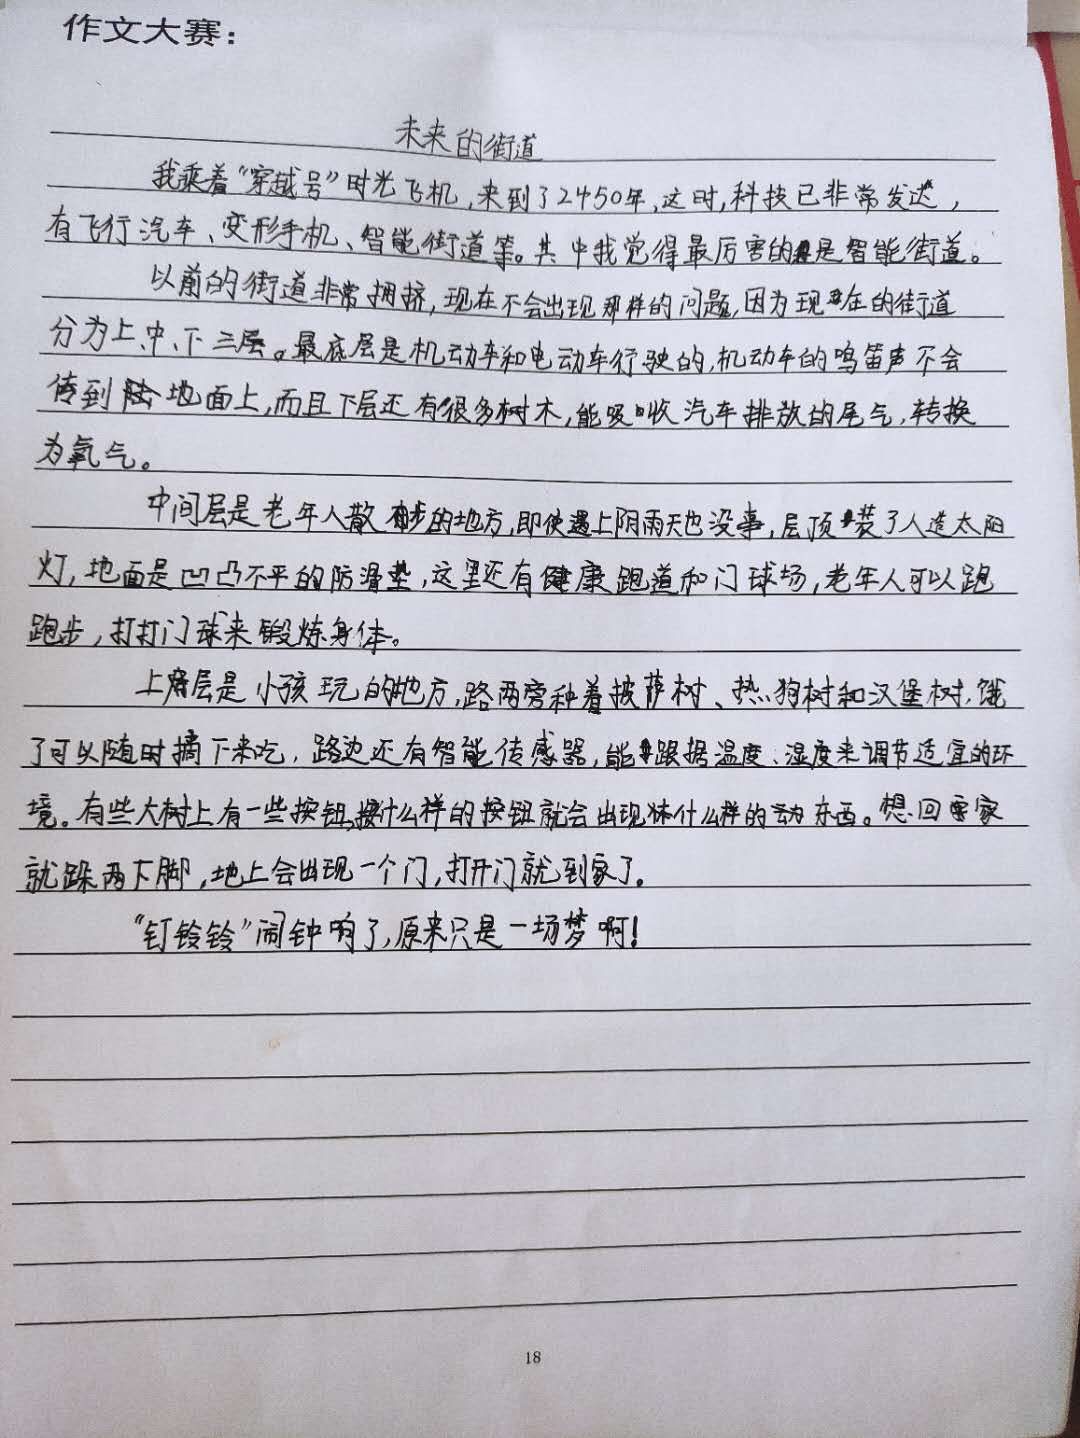 作文大赛：
未来的街道
我乘着“穿越号”时光飞机，来到了2450年，这时，科技已非常发达，
有飞行汽车、变形手机、智能街道等。其中我觉得最厉害的是智能街道。
以前的街道非常拥挤，现在不会出现那样的问题，因为现在的街道
分为上、中、下三层。最底层是机动车和电动车行驶的，机动车的鸣笛声不会
传到陆地面上，而且下层还有很多树木，能吸收汽车排放的尾气，转换
为氧气。
中间层是老年人散步的地方，即使遇上阴雨天也没事，层顶装了人造太阳
灯，地面是凹凸不平的防滑垫，这里还有健康跑道和门球场，老年人可以跑
跑步，打打门球来锻炼身体。
上层是小孩玩的地方，路两旁种着披萨树、热狗树和汉堡树，饿
了可以随时摘下来吃，路边还有智能传感器，能跟据温度、湿度来调节适宜的环
境。有些大树上有一些按钮，按什么样的按钮就会出现什么样的东西。想回家
就跺两下脚，地上会出现一个门，打开门就到家了。
“钉铃铃”闹钟响了，原来只是一场梦啊！
18